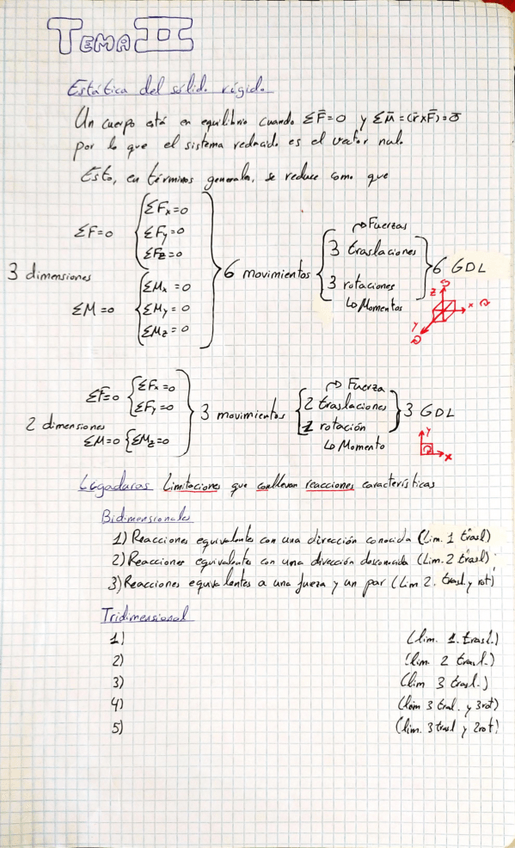 TEMA II
Estática del sólido rígido
Un cuerpo está en equilibrio cuando ΣF̄=0 y ΣM̄=(r̄xF̄)=ō
por lo que el sistema reducido es el vector nulo.
Esto, en términos generales, se reduce como que
3 dimensiones
ΣF=0 { ΣFx=0
ΣFy=0
ΣFz=0
ΣM=0 { ΣMx=0
ΣMy=0
ΣMz=0
} 6 movimientos
↳Fuerzas
3 traslaciones
3 rotaciones
↳Momentos
} 6 GDL
z
x
y
2 dimensiones
ΣF̄=0 { ΣFx=0
ΣFy=0
ΣM=0 { ΣMz=0
} 3 movimientos
↳ Fuerza
2 traslaciones
1 rotación
↳ Momento
} 3 GDL
y
x
Ligaduras Limitaciones que conllevan reacciones características
Bidimensionales
1) Reacciones equivalentes con una dirección conocida (Lim. 1 trasl)
2) Reacciones equivalentes con una dirección desconocida (Lim. 2 trasl)
3) Reacciones equivalentes a una fuerza y un par (Lim 2. trasl y rot)
Tridimensional
1) (lim. 1. trasl.)
2) (lim. 2 trasl.)
3) (lim 3 trasl.)
4) (lim 3 trasl. y 3rot)
5) (lim. 3 trasl y 2rot)